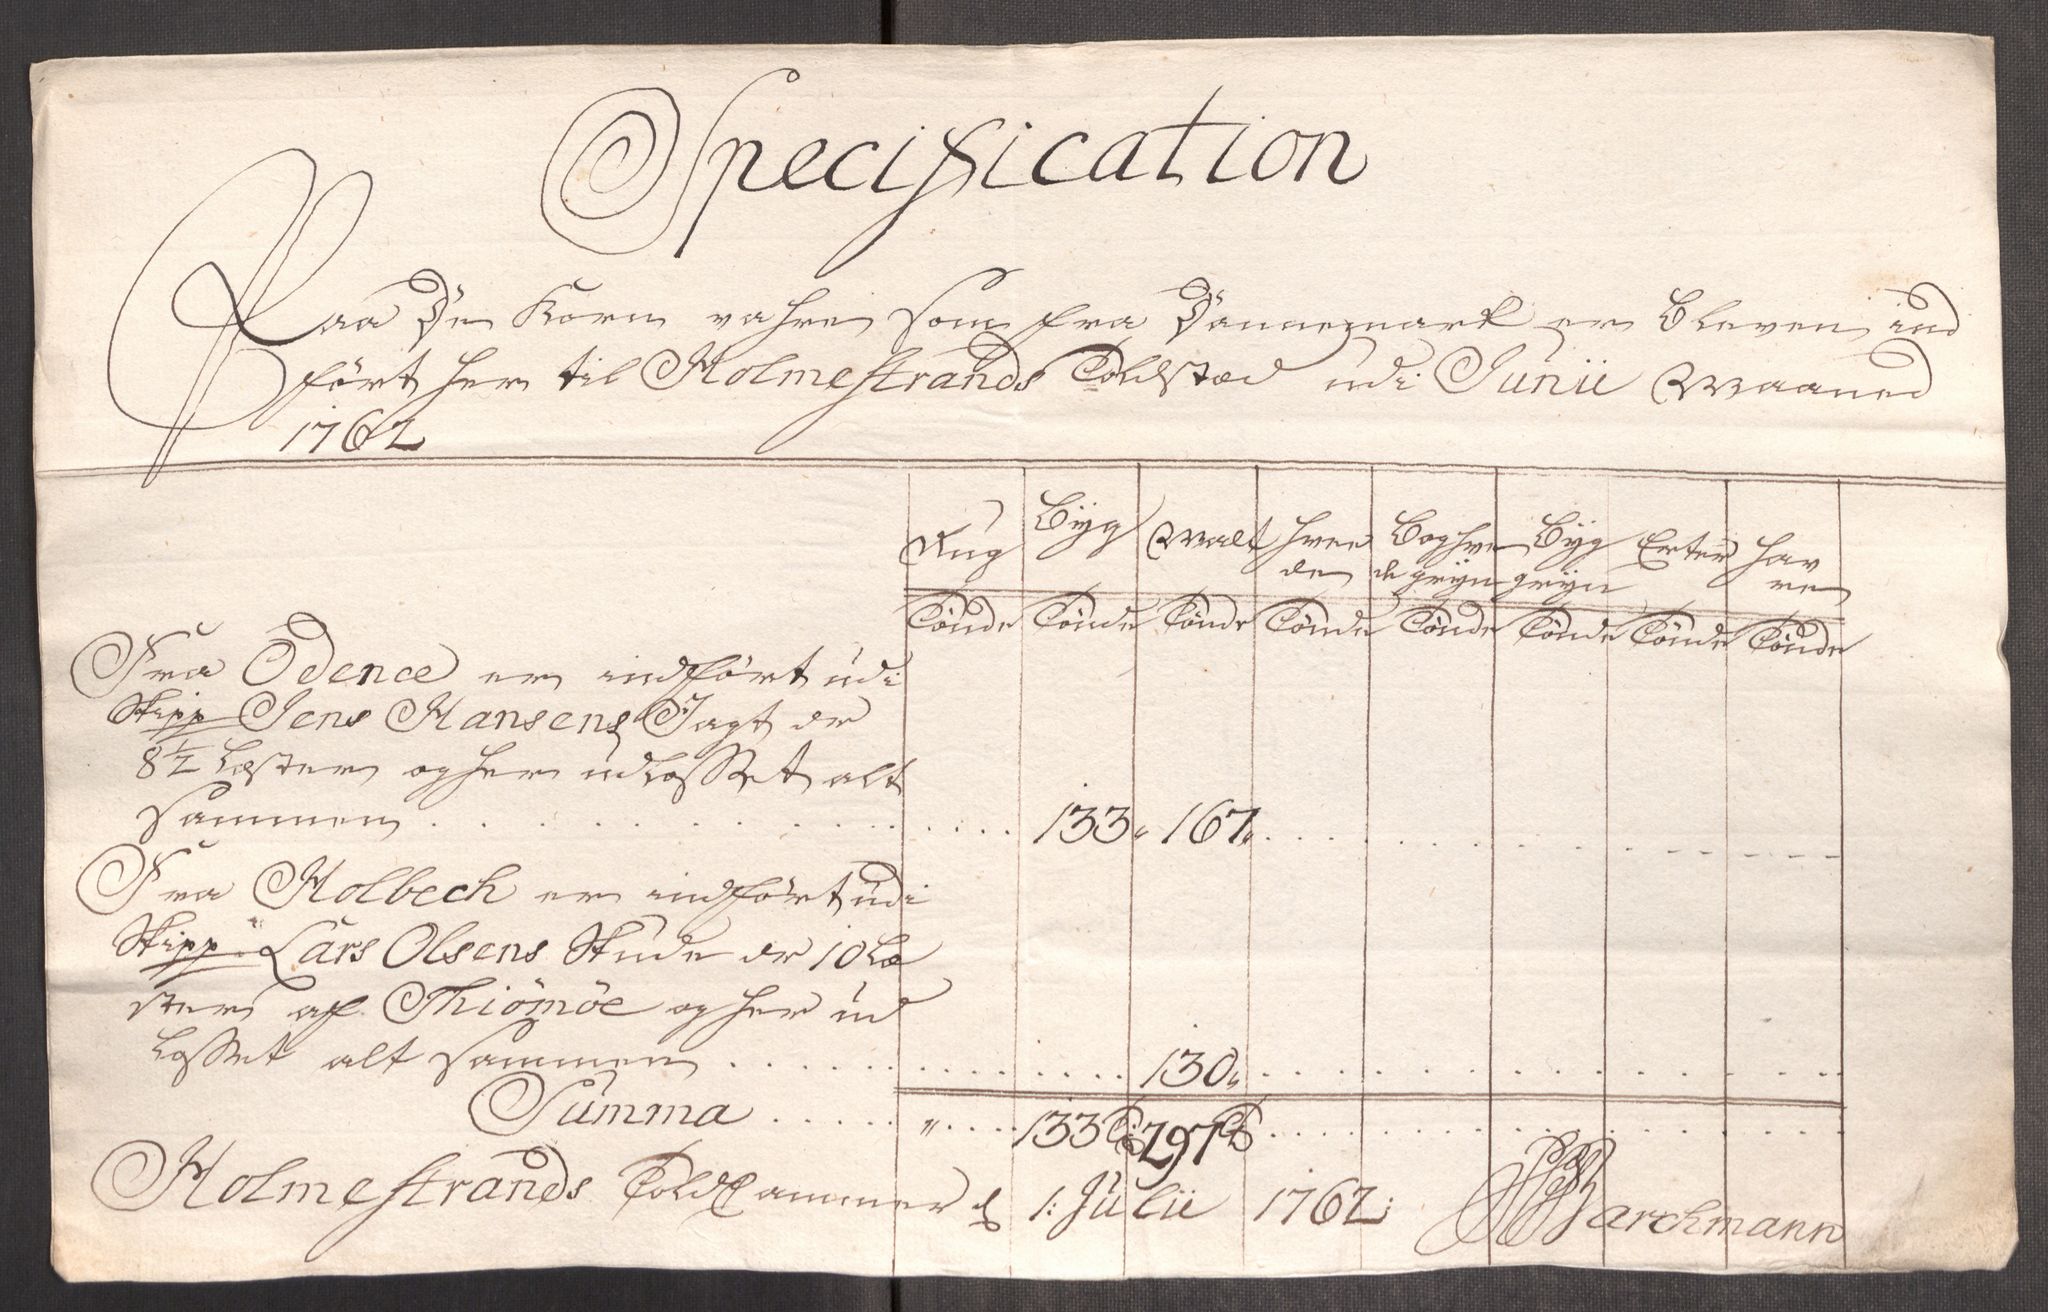 Specification
Paa De Korn vahre som fra Dännemark er bleven ind
ført her til Holmestrands Toldsted udi Junii Maaned
1762
Rug Byg Malt Hvee Boghve Byg Erter Hav
den de gryn gryn ren
Tønde Tønde Tønde Tønde Tønde Tønde Tønde Tønde
Fra Odence er indført udi
Skipp Jens Hansens Jagt dr
8 1/2 Læster og her udlosset alt
sammen . . . . . . . . . . 133„ 167„ . . . . . .
Fra Holbech er indført udi
Skipp Lars Olsens Skude dr 10 Læ
ster af Thiömöe og her ud
losset alt sammen . . . . . . . . 130„ . . . . . .
Summa . . . . . „ . . . . 133 T 297 T . . . . . .
Holmestrands ToldCammer d 1: Julii 1762: Barchmann